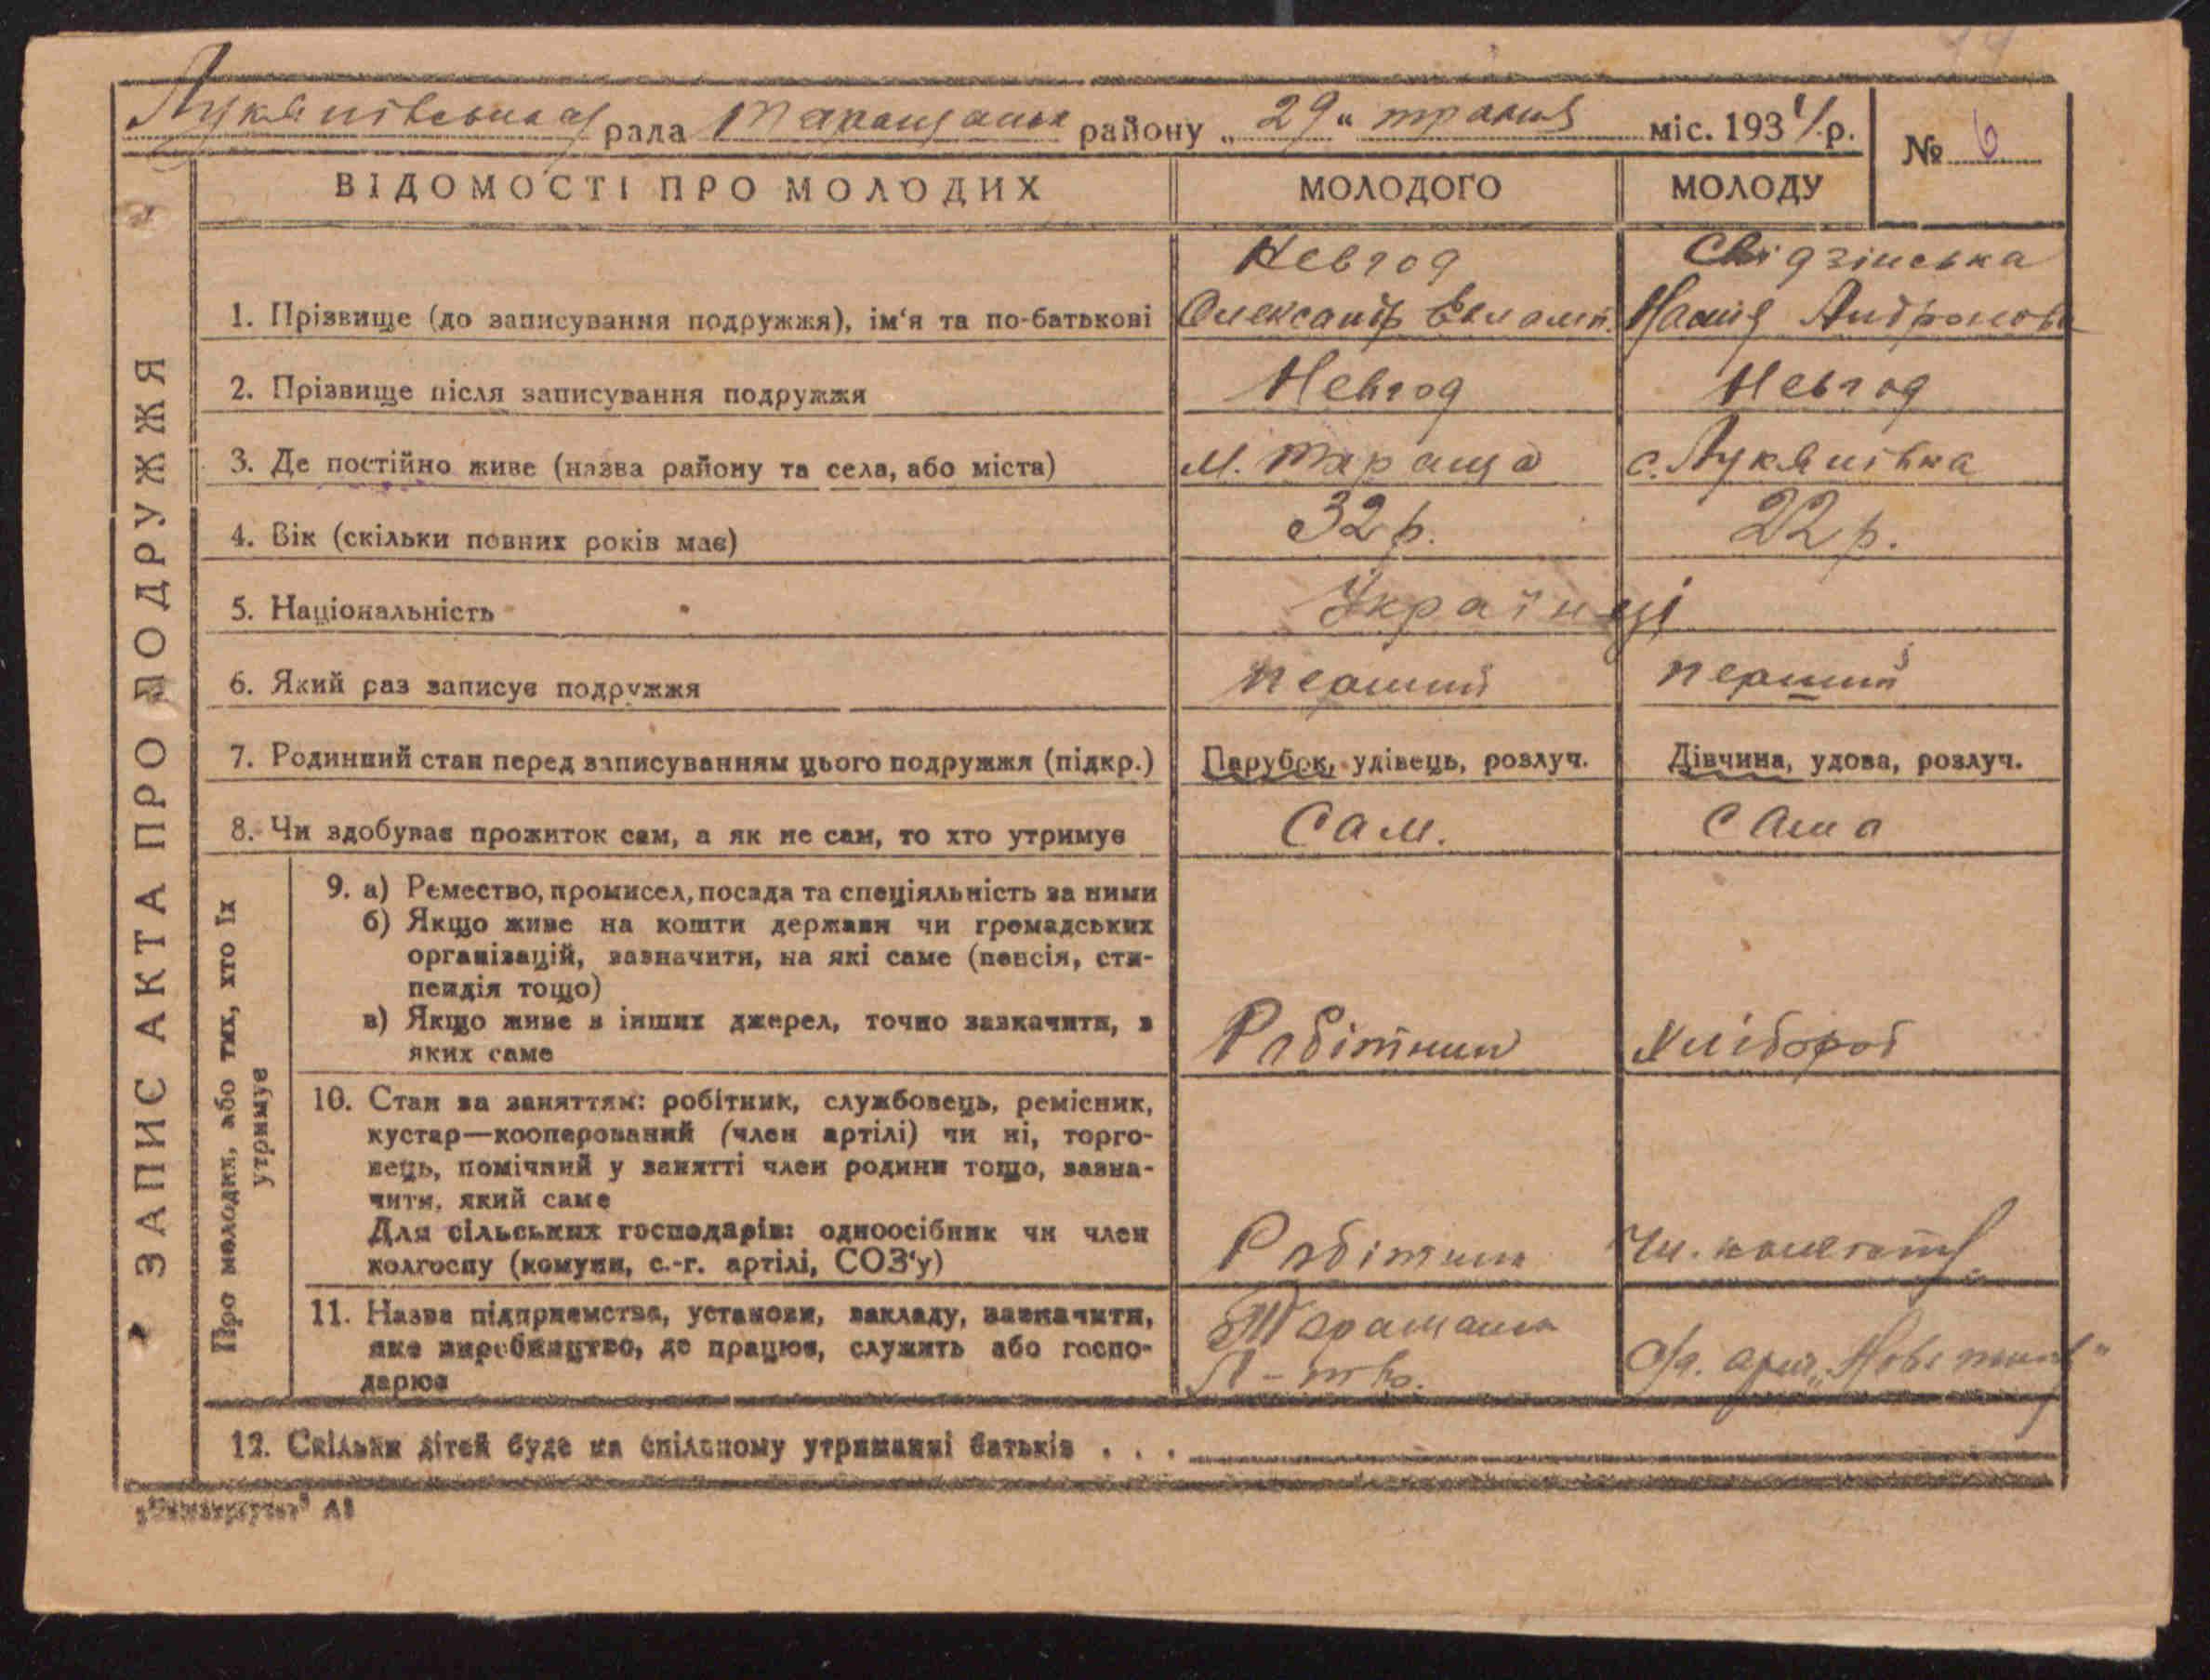 Лукянівська рада Таращанськ району „ 29 " травня міс. 1934 р.
№ 6
ЗАПИС АКТА ПРО ПОДРУЖЖЯ
ВІДОМОСТІ ПРО МОЛОДИХ МОЛОДОГО МОЛОДУ
Невгод Свідзінська
1. Прізвище (до записування подружжя), ім'я та по-батькові Олександр Настя
2. Прізвище після записування подружжя Невгод Невгод
3. Де постійно живе (назва району та села, або міста) м. Тараща с. Лукянівка
4. Вік (скільки повних років має) 32 р. 22 р.
5. Національність Українці
6. Який раз записує подружжя перший перший
7. Родинний стан перед записуванням цього подружжя (підкр.) Парубок, удівець, розлуч. Дівчина, удова, розлуч.
8. Чи здобуває прожиток сам, а як не сам, то хто утримує Сам. Сама
Про молодих, або тих, хто їх
утримує
9. а) Ремество, промисел, посада та спеціяльність за ними
б) Якщо живе на кошти держави чи громадських
організацій, зазначити, на які саме (пенсія, сти-
пендія тощо)
в) Якщо живе з інших джерел, точно зазначити, з
яких саме Робітник Хлібороб
10. Стан за заняттям: робітник, службовець, ремісник,
кустар—кооперований (член артілі) чи ні, торго-
вець, помічний у занятті член родини тощо, зазна-
чити, який саме
Для сільських господарів: одноосібник чи член
колгоспу (комуни, с.-г. артілі, СОЗ'у) Робітник Чл.
11. Назва підприємства, установи, закладу, зазначити,
яке виробництво, де працює, служить або госпо-
дарює Таращанськ
Л-тво.
12. Скільки дітей буде на спільному утриманні батьків . . .